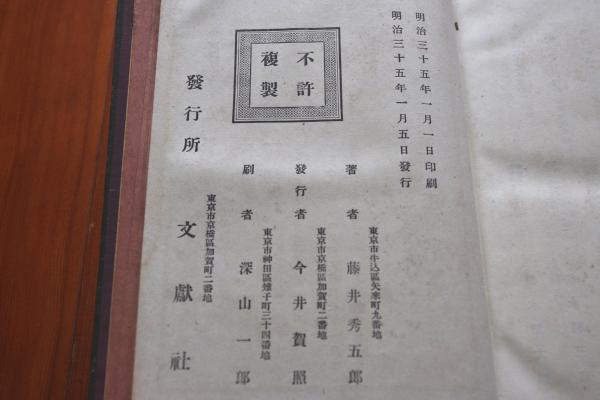 明治三十五年一月一日印刷
明治三十五年一月五日發行
不許
複製
東京市牛込區矢來町九番地
著者 藤井秀五郎
東京市京橋區加賀町二番地
發行者 今井賀照
東京市神田區雉子町三十四番地
刷者 深山一郎
發行所
東京市京橋區加賀町二番地
文獻社